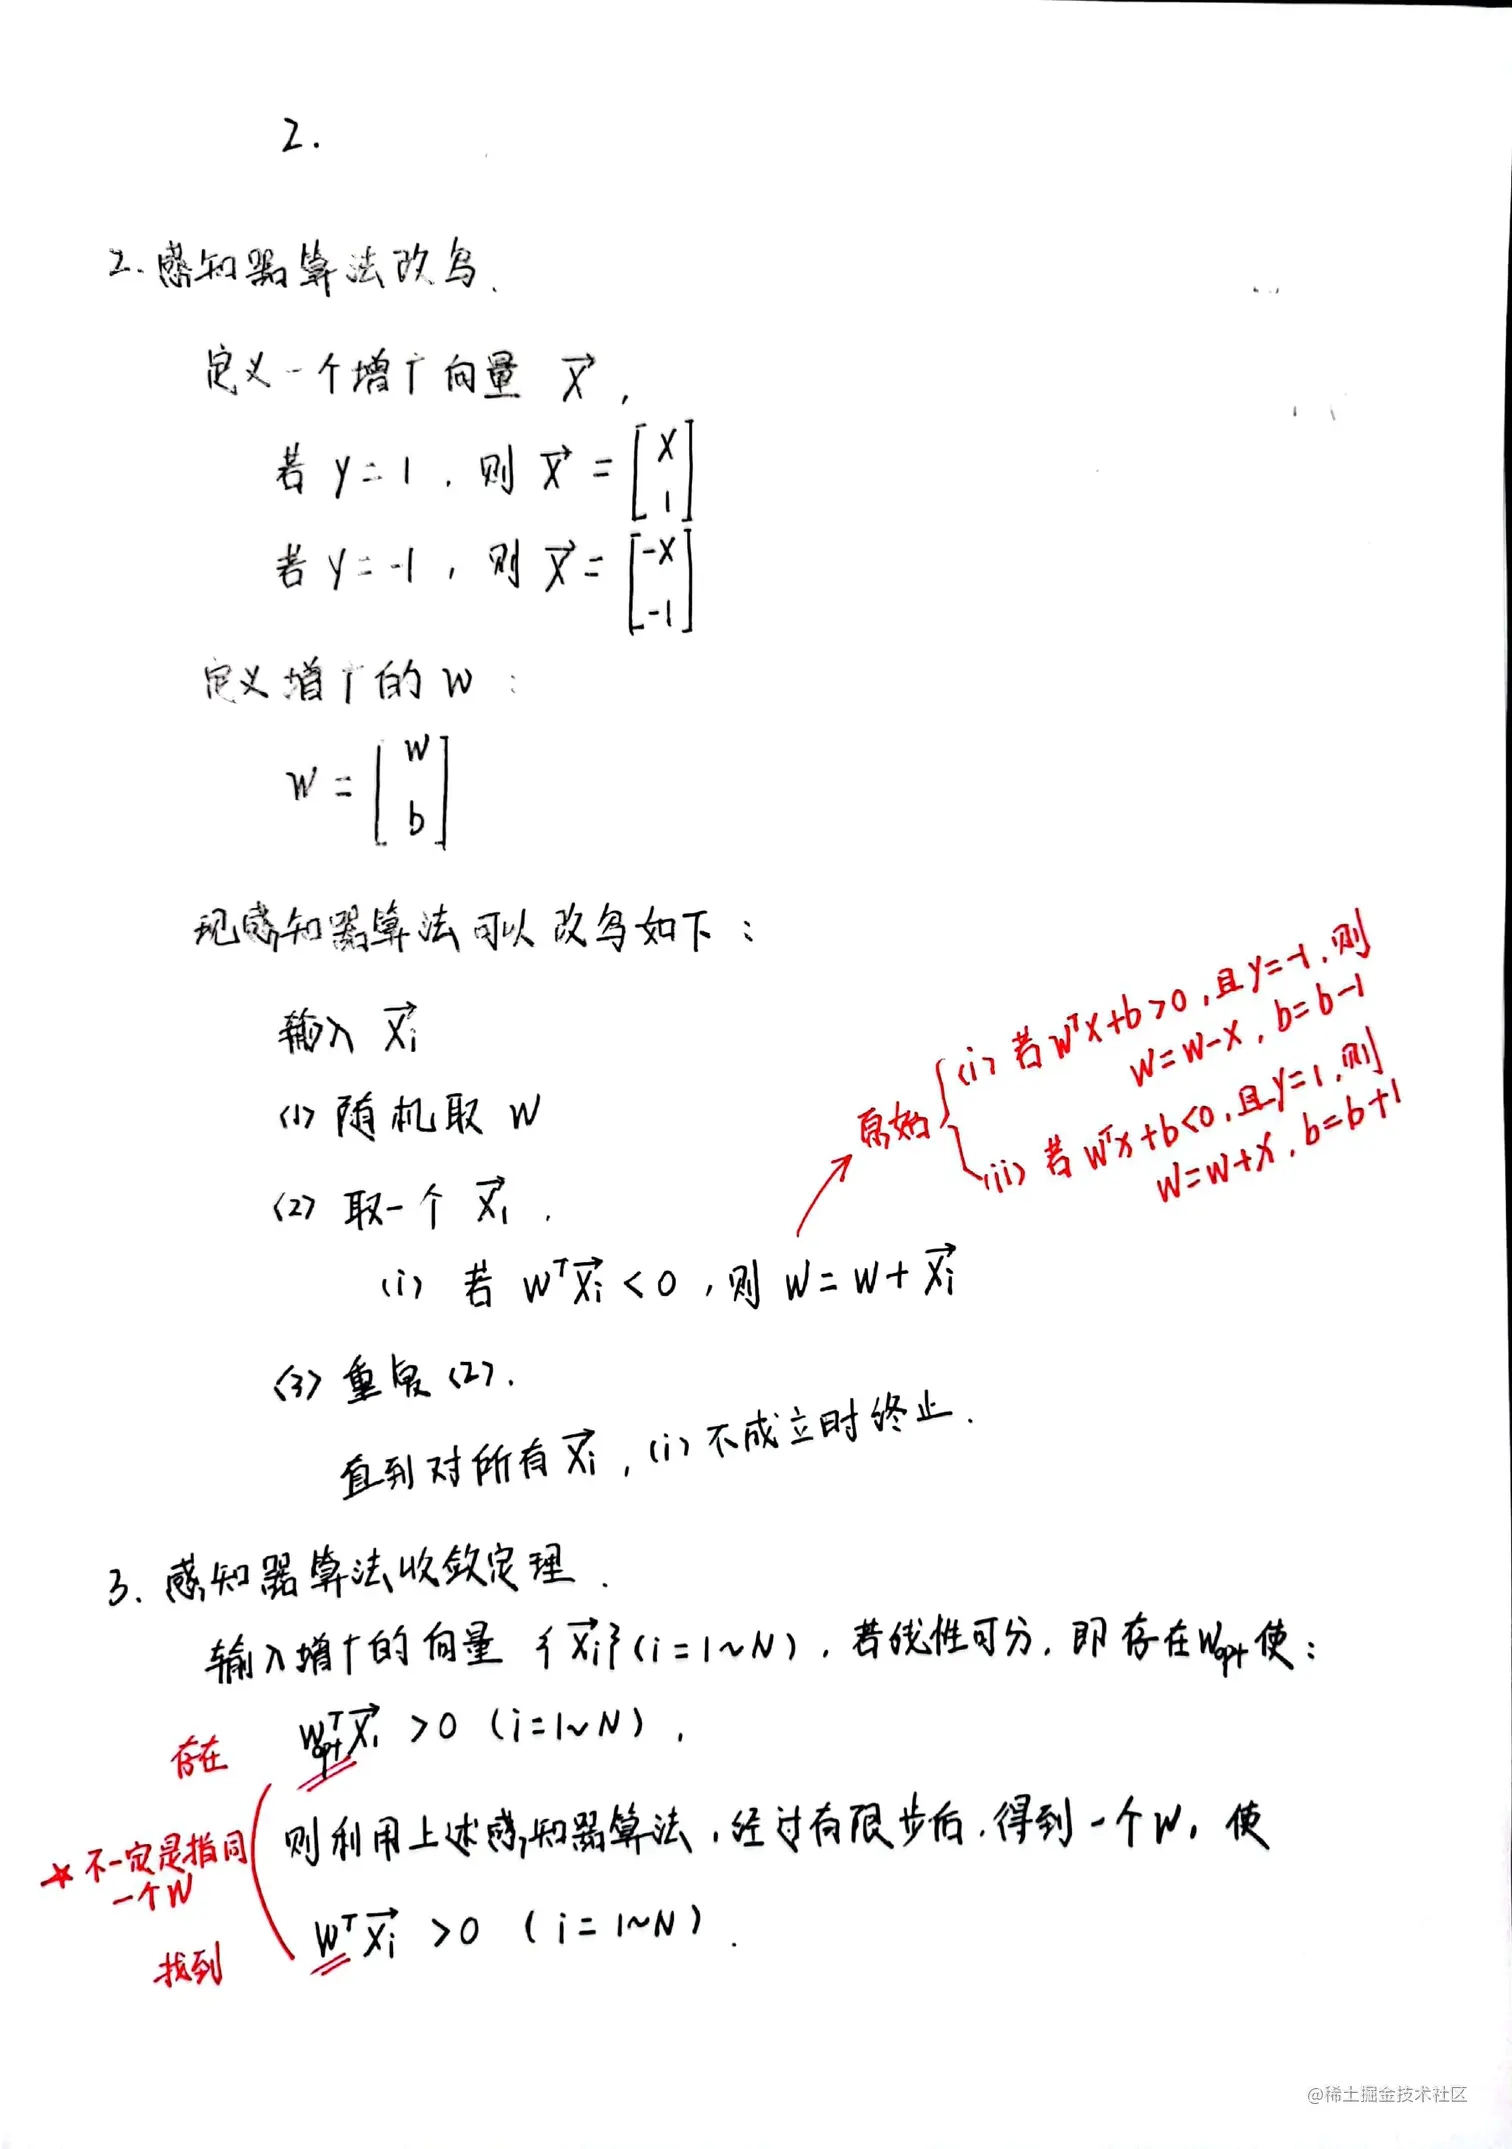 2.
2. 感知器算法改写.
定义一个增广向量 $\vec{X}$,
若 y=1, 则 $\vec{X} = \begin{bmatrix} X \\ 1 \end{bmatrix}$
若 y=-1, 则 $\vec{X} = \begin{bmatrix} -X \\ -1 \end{bmatrix}$
定义增广的 W:
$W = \begin{bmatrix} W \\ b \end{bmatrix}$
现感知器算法可以改写如下:
输入 $\vec{X_i}$
(1) 随机取 W
(2) 取一个 $\vec{X_i}$.
(i) 若 $W^T\vec{X_i} < 0$, 则 $W = W + \vec{X_i}$
原始
(i) 若 $W^TX+b>0$, 且 y=-1, 则
W=W-X, b=b-1
(ii) 若 $W^TX+b<0$, 且 y=1, 则
W=W+X, b=b+1
(3) 重复(2).
直到对所有 $\vec{X_i}$, (i) 不成立时终止.
3. 感知器算法收敛定理.
输入增广的向量 {$\vec{X_i}$} (i=1~N), 若线性可分, 即存在 $W_{opt}$ 使:
$W_{opt}^T\vec{X_i} > 0$ (i=1~N),
存在
则利用上述感知器算法, 经过有限步后, 得到一个W, 使
★ 不一定是指同
一个W
$W^T\vec{X_i} > 0$ (i=1~N).
找到
@稀土掘金技术社区